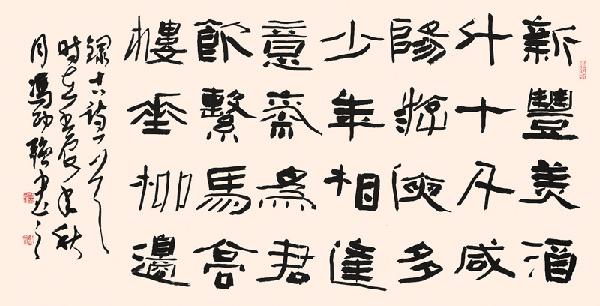 新豐美酒
斗十千咸
陽遊俠多
少年相逢
意氣為君
飲繫馬高
樓垂柳邊
錄古詩一首
時在辰年秋
月馮書